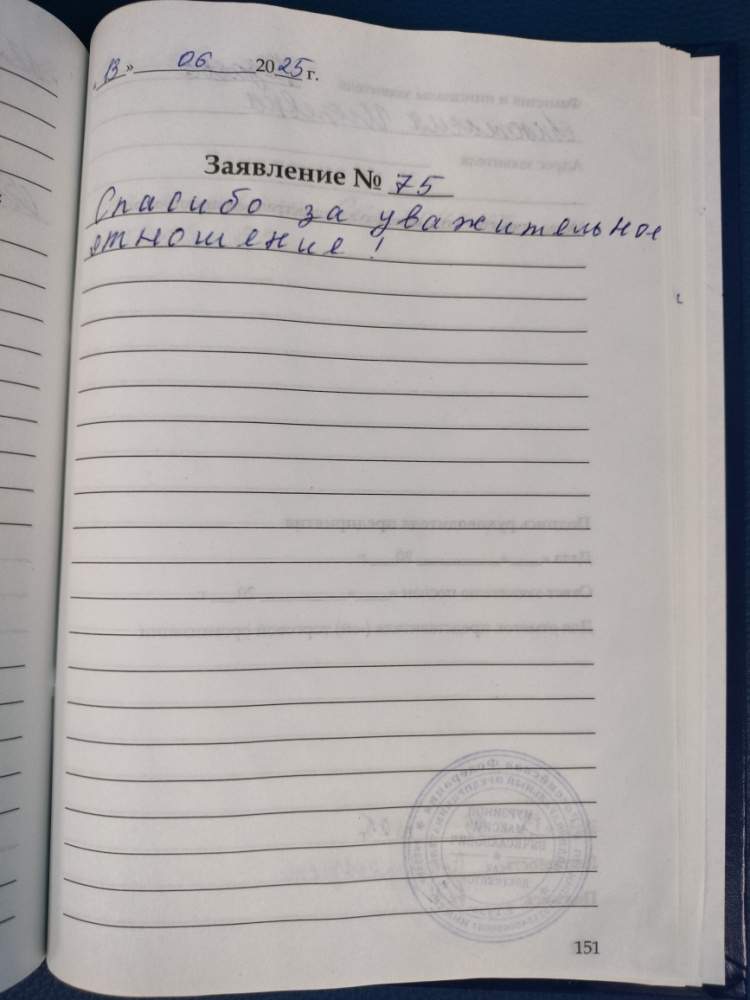 «13» 06 2025 г.
Заявление № 75
Спасибо за уважительное
отношение!
151